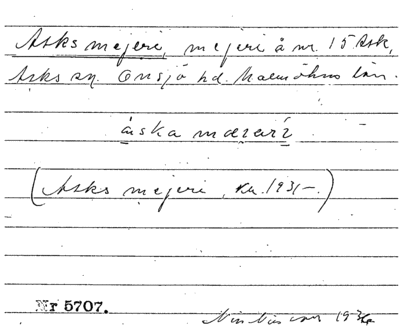 Asks mejeri, mejeri å nr. 15 Ask,
Asks sn. Onsjö hd. Malmöhus län.
áska
(Asks mejeri, KR. 1931–.)
Nr 5707.
1936